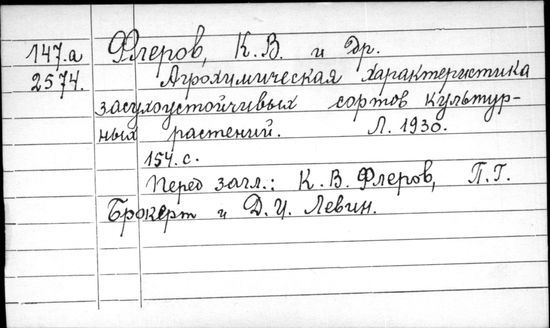 147.а Флеров, К.В. и др.
2574. Агрохимическая характеристика
засухоустойчивых сортов культур-
ных растений. Л. 1930.
154.с.
Перед загл.: К.В. Флеров, П.Г.
Брокерт и Д.И. Левин.